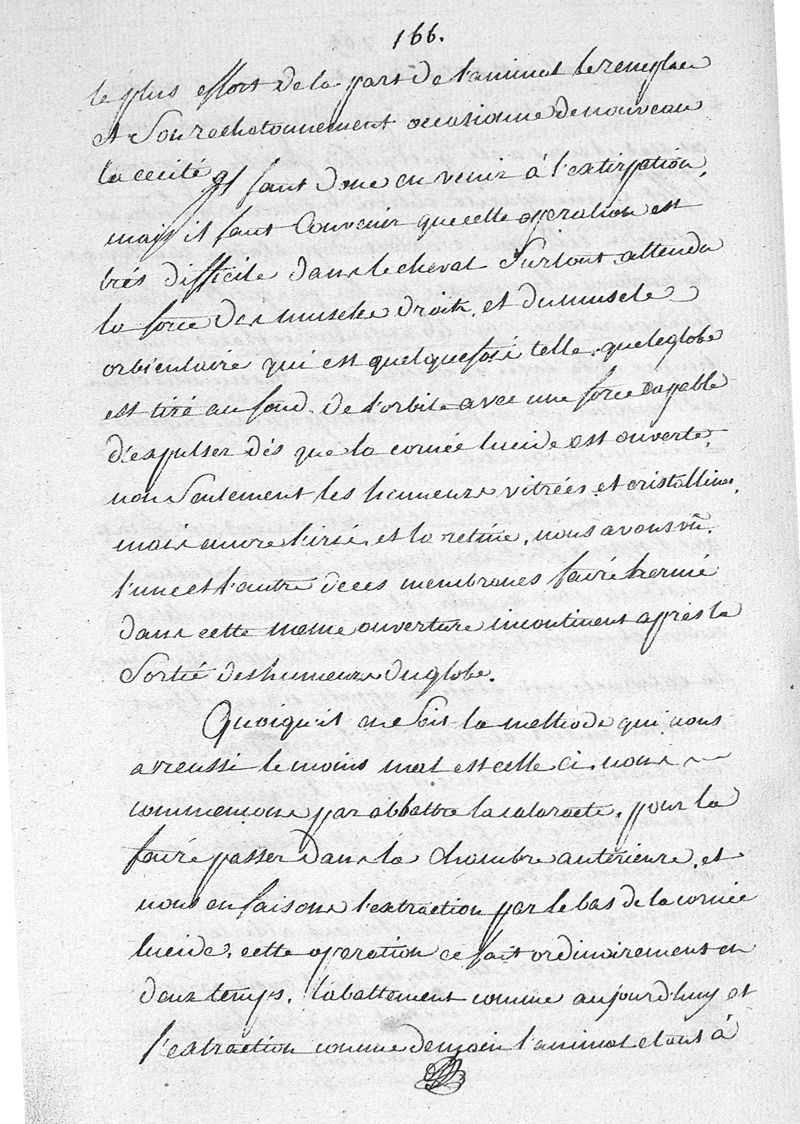 166.
le plus effort de la part de l'animal le remplace
et son rechatonnement occasionne de nouveau
la cecité Il faut donc en venir à l'extirpation,
mais il faut convenir que cette operation est
trés difficile dans le cheval surtout attendu
la force des muscles droits, et du muscle
orbiculaire qui est quelquefois telle, que le globe
est tiré au fond de l'orbite avec une force capable
d'expulser dés que la cornée lucide est ouverte,
non seulement les humeurs vitrées, et cristallines,
mais encore l'iris, et la retine, nous avons vû
l'une et l'autre de ces membranes faire hernie
dans cette meme ouverture incontinent aprés la
sortie des humeurs du globe.
Quoiqu'il en soit la methode qui nous
a reussi le moins mal est celle ci, nous
commencons par abbattre la cataracte, pour la
faire passer dans la chambre antérieure, et
nous en faisons l'extraction par le bas de la cornée
lucide, cette operation ce fait ordinairement en
deux temps, l'abattement comme aujourd'huy et
l'extraction comme demain l'animal etant à